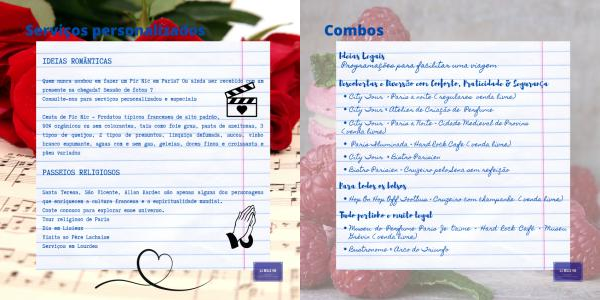 Serviços personalizados
IDEIAS ROMÂNTICAS
Quem nunca sonhou em fazer um Pic Nic em Paris? Ou ainda ser recebido com um
presente na chegada? Sessão de fotos ?
Consulte-nos para serviços personalizados e especiais
Cesta de Pic Nic - Produtos típicos franceses de alto padrão,
90% orgânicos ou sem colorantes, tais como foie gras, pasta de azeitonas, 3
tipos de queijos, 2 tipos de presuntos, linguiça defumada, succo, vinho
branco espumante, aguas com e sem gas, geleias, doces finos e croissants e
pães variados
PASSEIOS RELIGIOSOS
Santa Teresa, São Vicente, Allan Kardec são apenas alguns dos personagens
que enriquecem a cultura francesa e a espiritualidade mundial.
Conte conosco para explorar esse universo.
Tour religioso de Paris
Dia em Lisieux
Visita ao Père Lachaise
Serviços em Lourdes
Combos
Ideias Legais
Programações para facilitar uma viagem
Descobertas e Diversão com Conforto, Praticidade & Segurança
• City Tour - Paris a noite (regulares venda livre)
• City Tour + Atelier de Criação de Perfume
• City Tour - Paris a Noite - Cidade Medieval de Provins
(venda livre)
• Paris Iluminada - Hard Rock Café (venda livre)
• City Tour + Bistro Parisien
• Bistro Parisien - Cruzeiro pelo Sena sem refeição
Para todos os bolsos
• Hop On Hop Off Tootbus - Cruzeiro com champanhe (venda livre)
Tudo pertinho e muito legal
• Museu do Perfume - Paris Je t'aime - Hard Rock Café - Museu
Grévin (venda livre)
• Bustronome + Arco do Triunfo